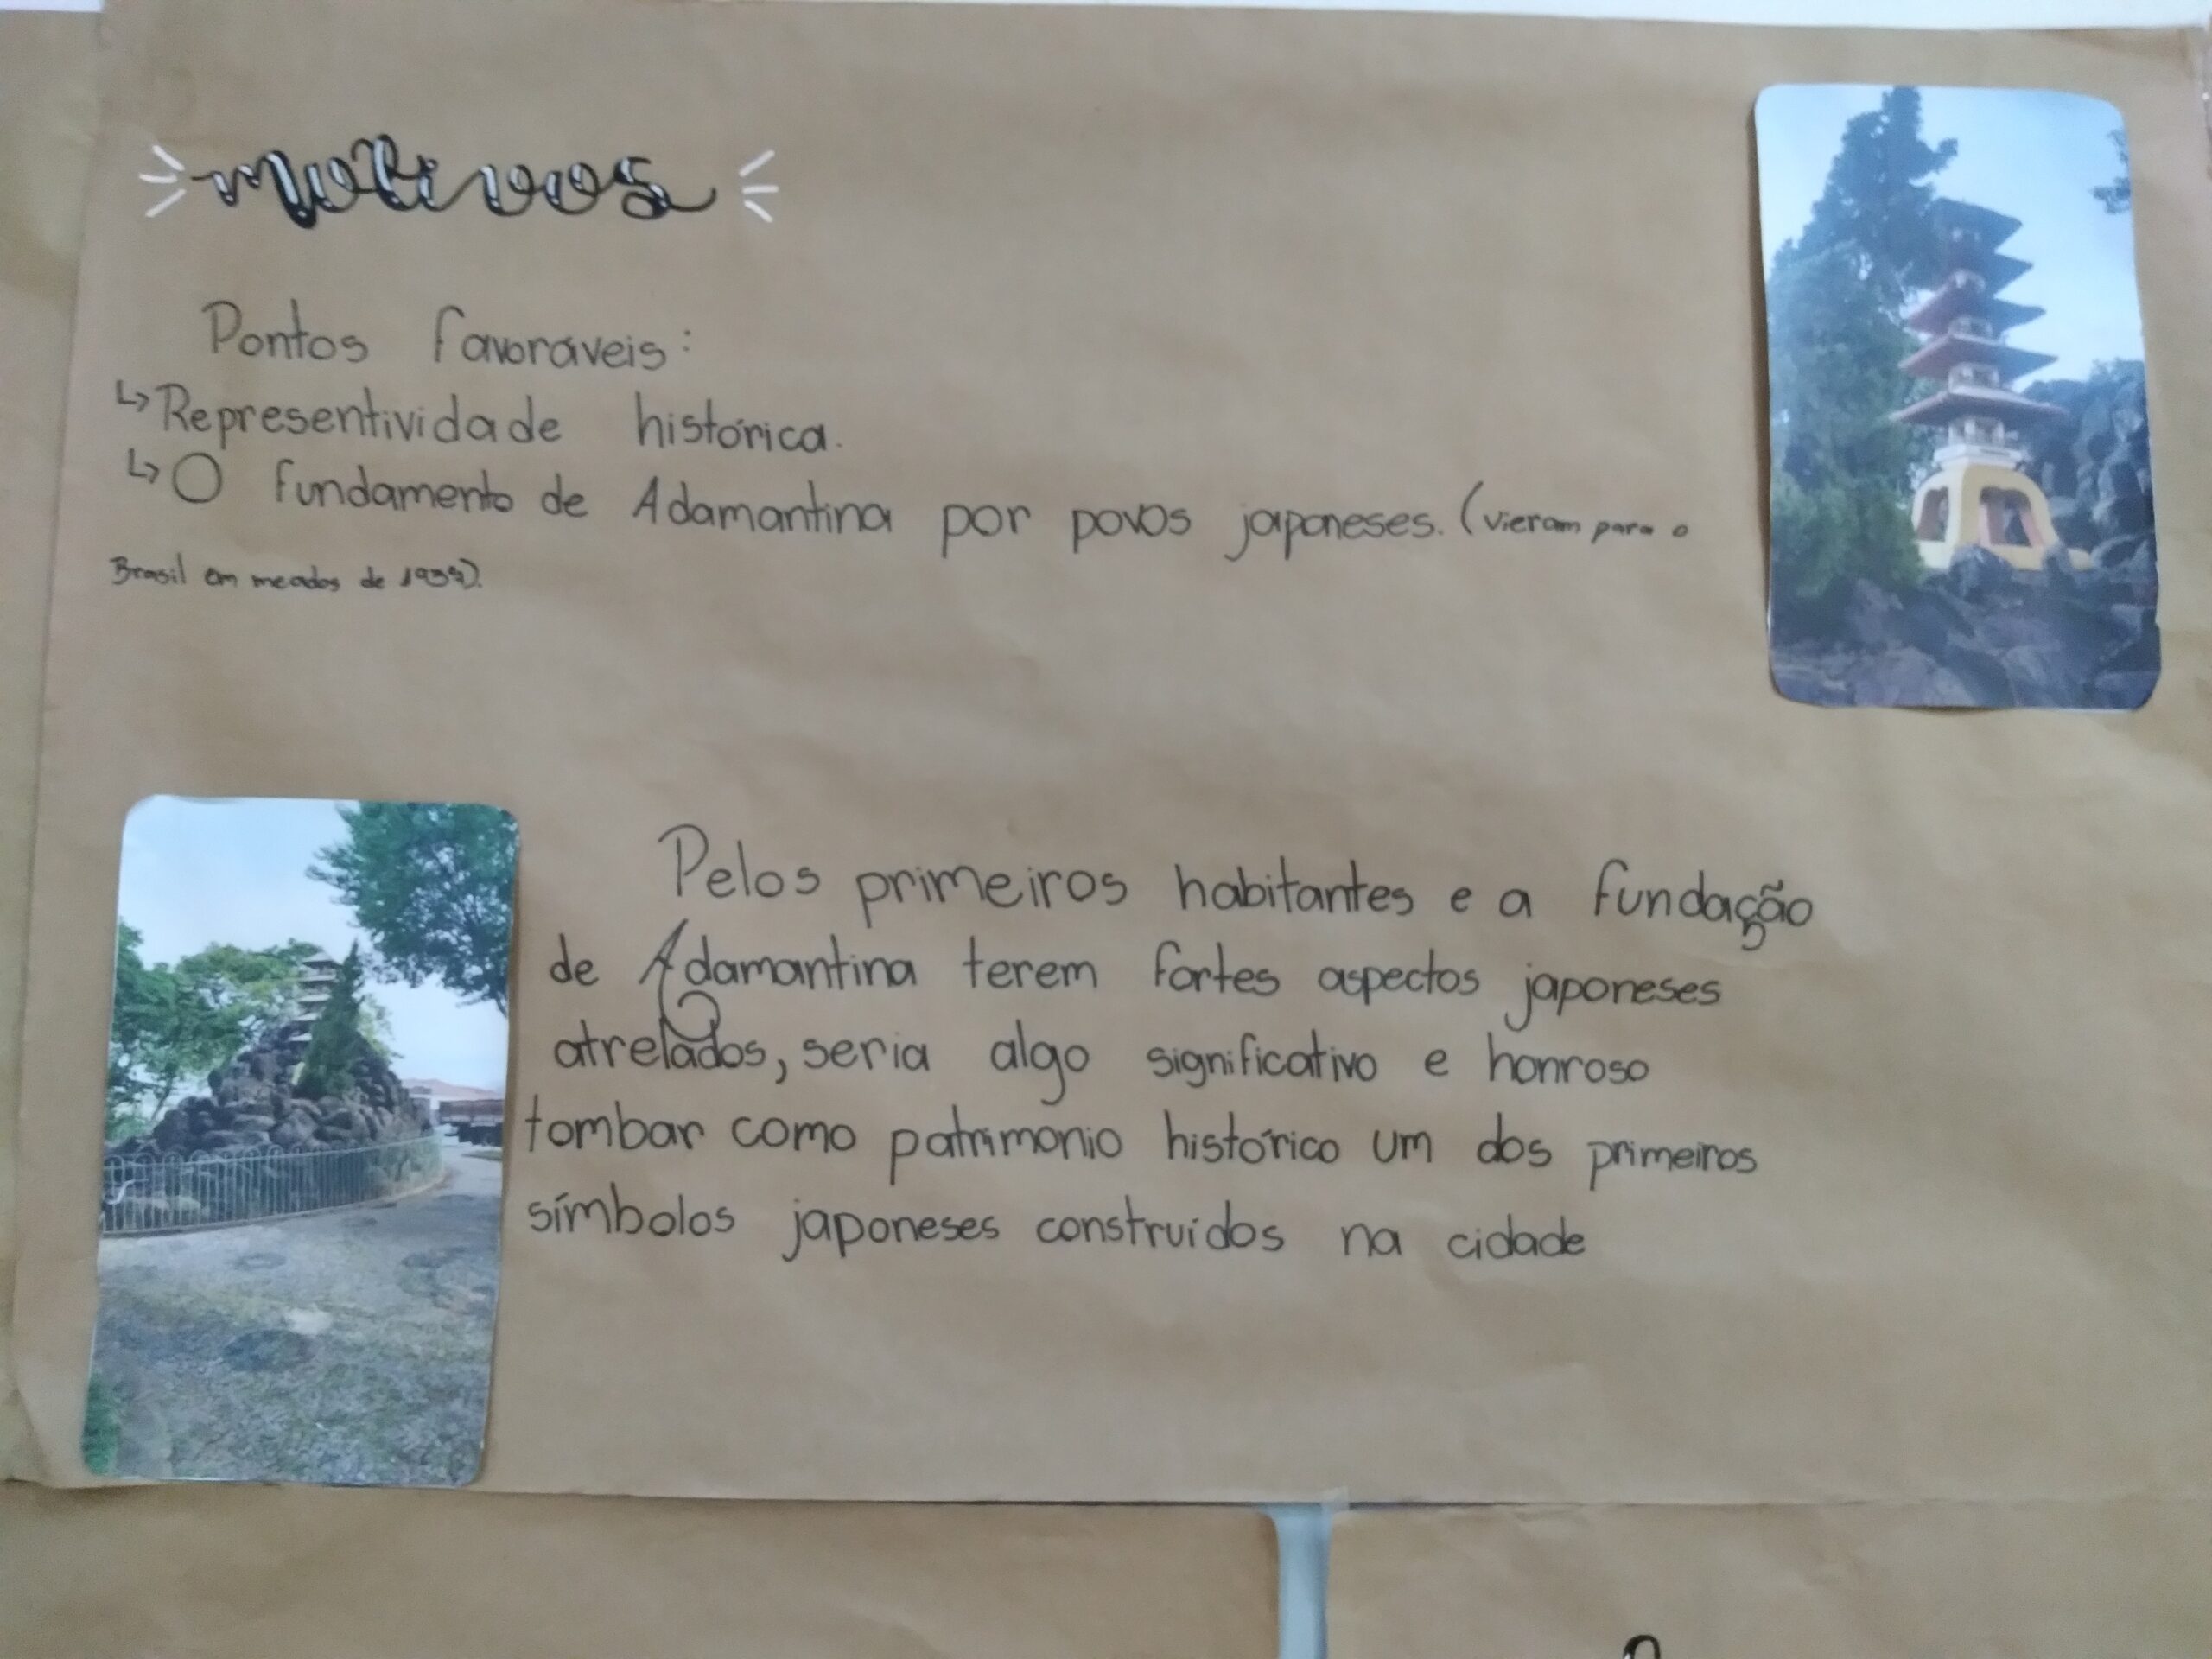 motivos
Pontos favoraveis:
↳Representividade histórica.
↳O fundamento de Adamantina por povos japoneses. (vieram para o
Brasil em meados de
Pelos primeiros habitantes e a fundação
de Adamantina terem fortes aspectos japoneses
atrelados, seria algo significativo e honroso
tombar como patrimonio histórico um dos primeiros
símbolos japoneses construídos na cidade